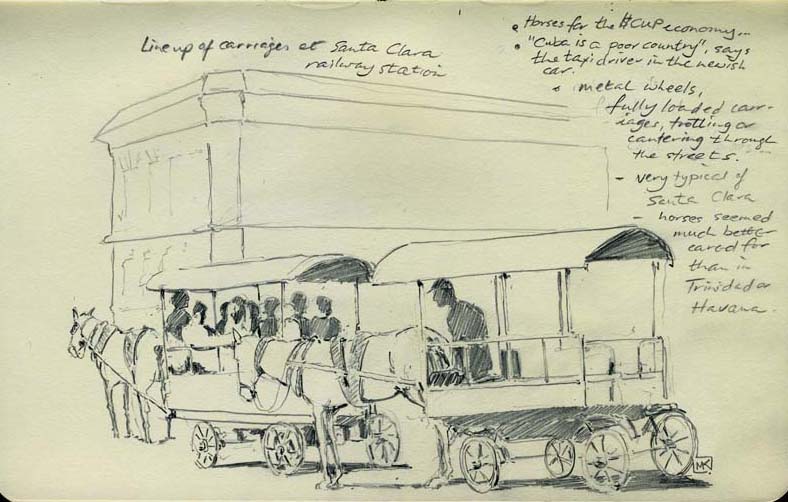 Lineup of carriages at Santa Clara
railway station
• Horses for the $CUP economy...
• "Cuba is a poor country", says
the taxi driver in the newish
car.
• metal wheels,
fully loaded carr-
iages, trotting or
cantering through
the streets.
- very typical of
Santa Clara
- horses seemed
much better
cared for
than in
Trinidad or
Havana.
MK